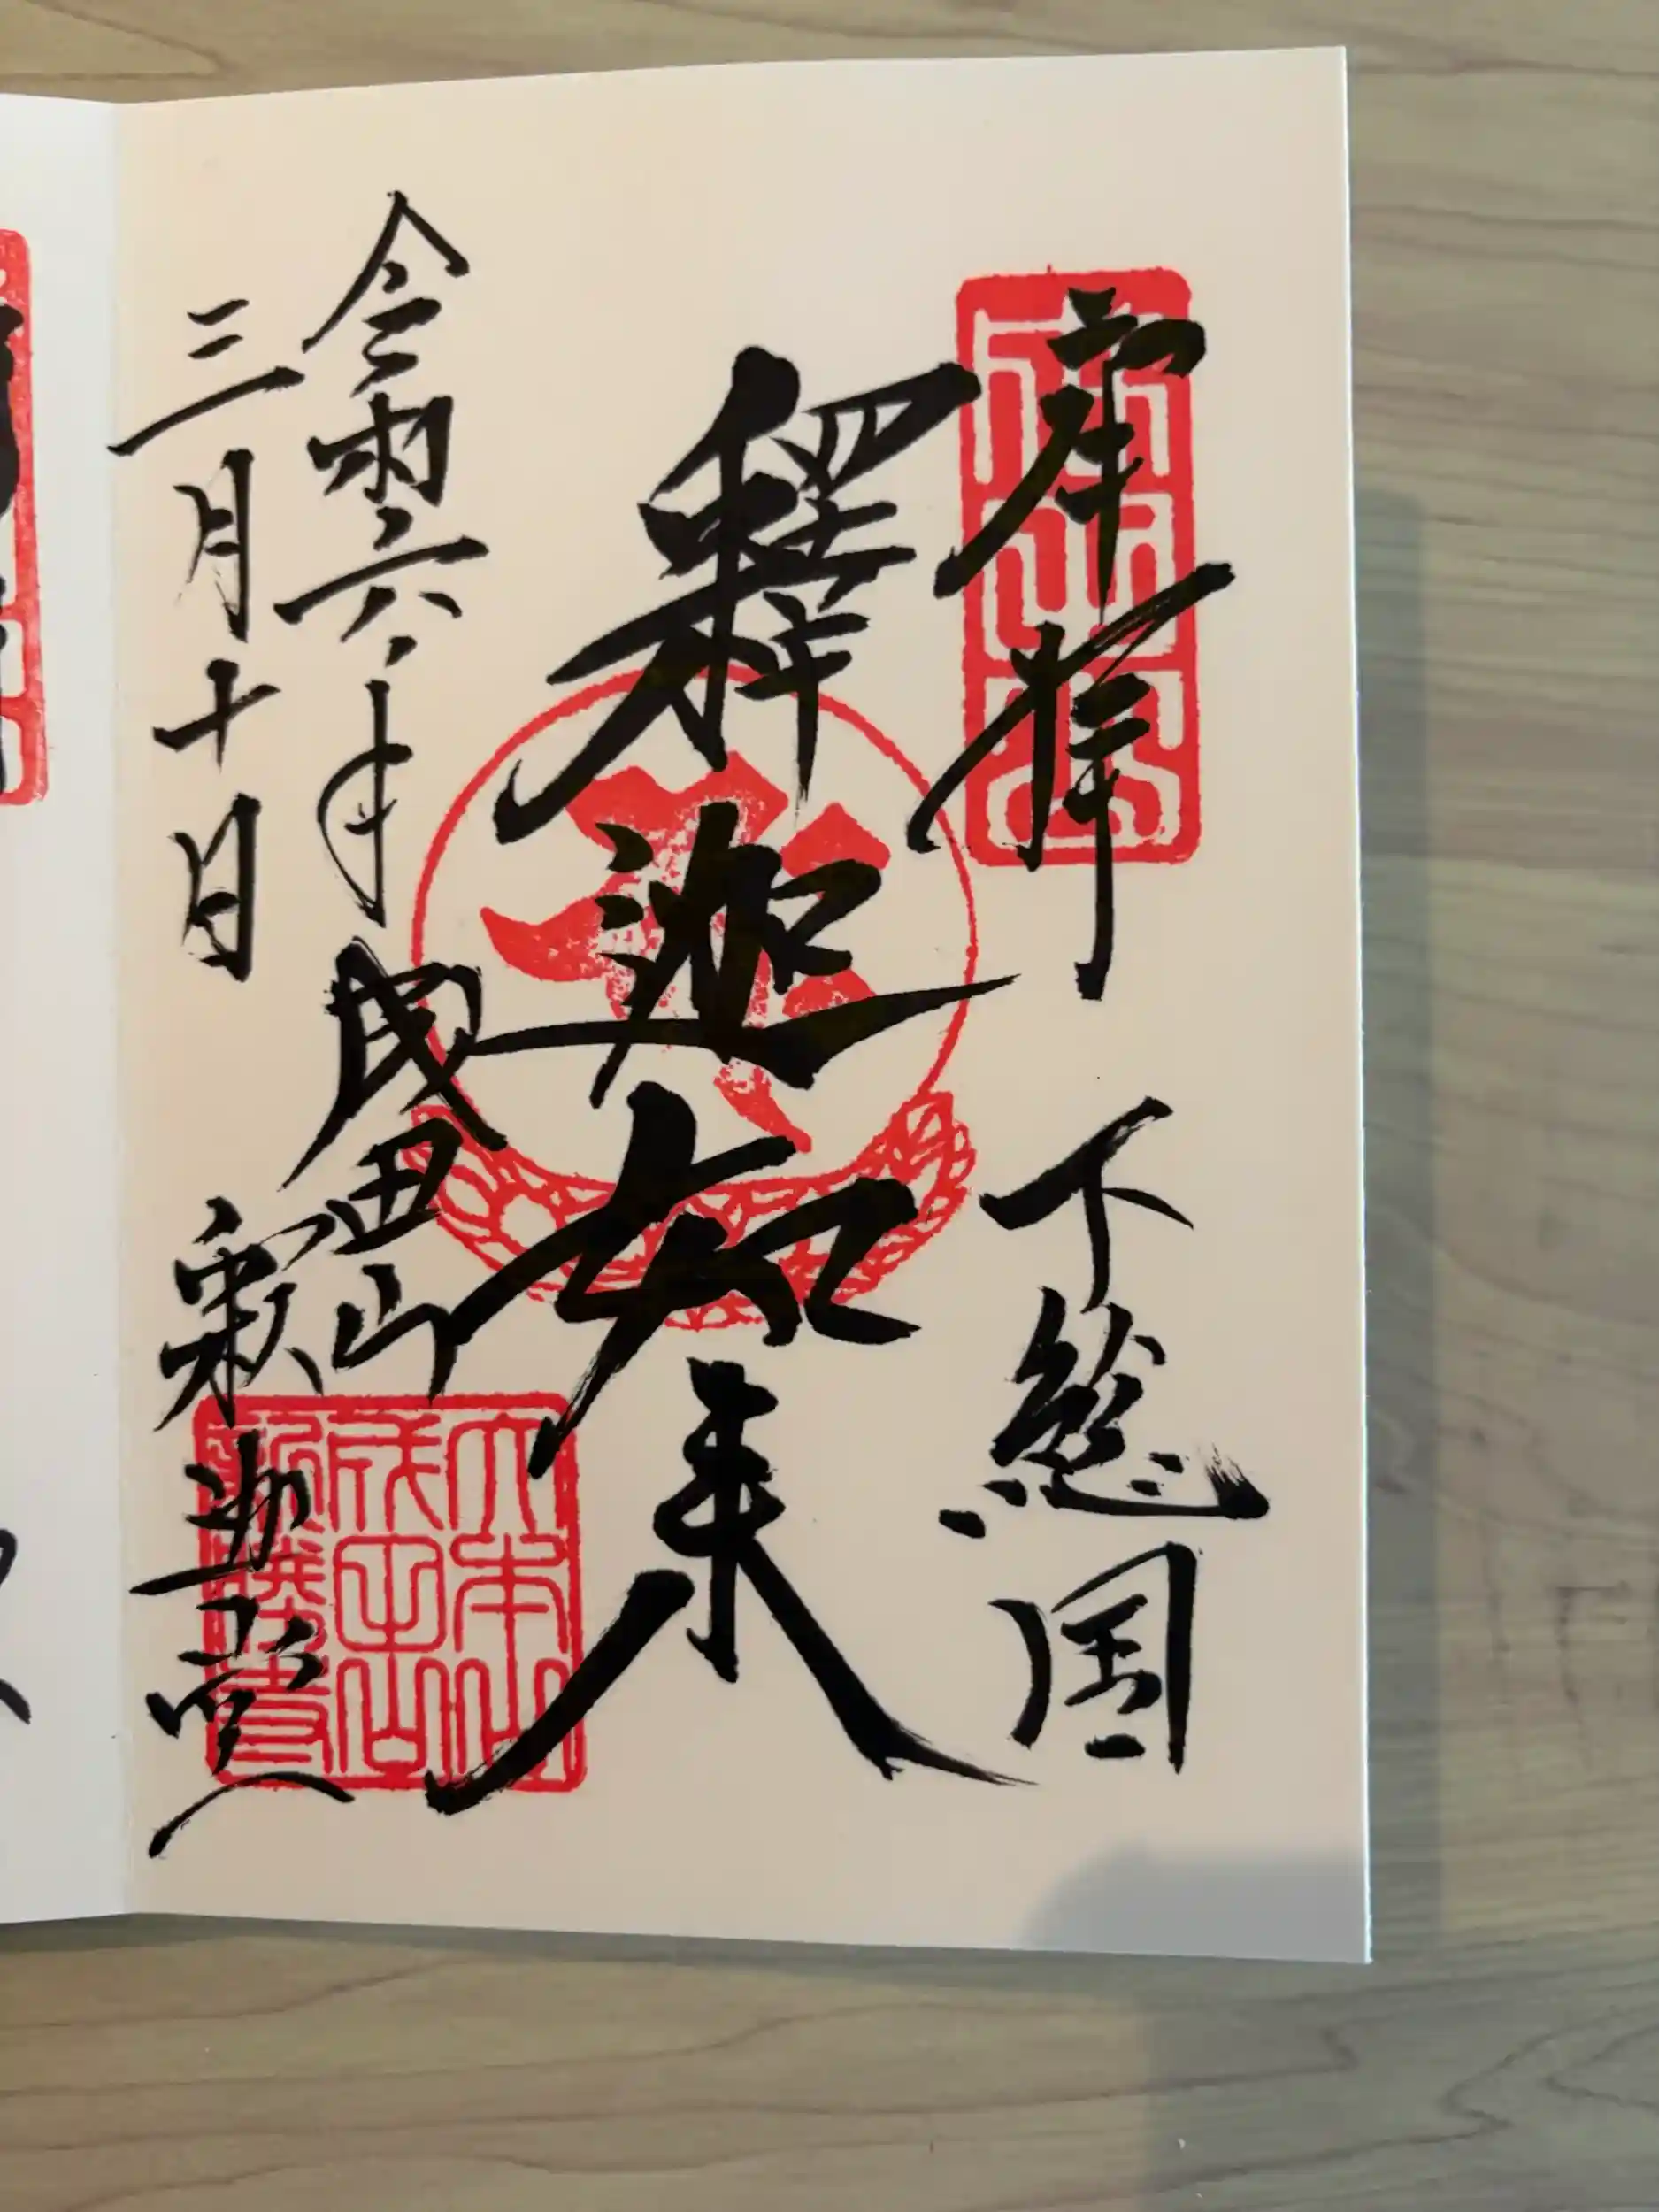 奉拝 下総国
釋迦如来
令和六年 成田山
三月十日 釈迦堂
大本山
成田山
新勝寺